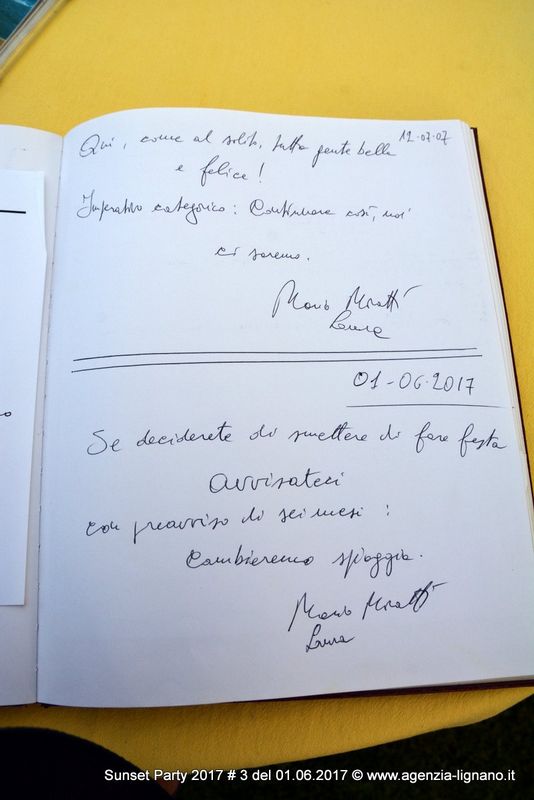 12-07-07
Qui, come al solito, tutta gente bella
e felice!
Imperativo categorico: Continuare così, noi
ci saremo.
Mario
Laura
01-06-2017
Se deciderete di smettere di fare festa
avvisateci
con preavviso di sei mesi:
cambieremo spiaggia.
Mario
Laura
Sunset Party 2017 # 3 del 01.06.2017 © www.agenzia-lignano.it